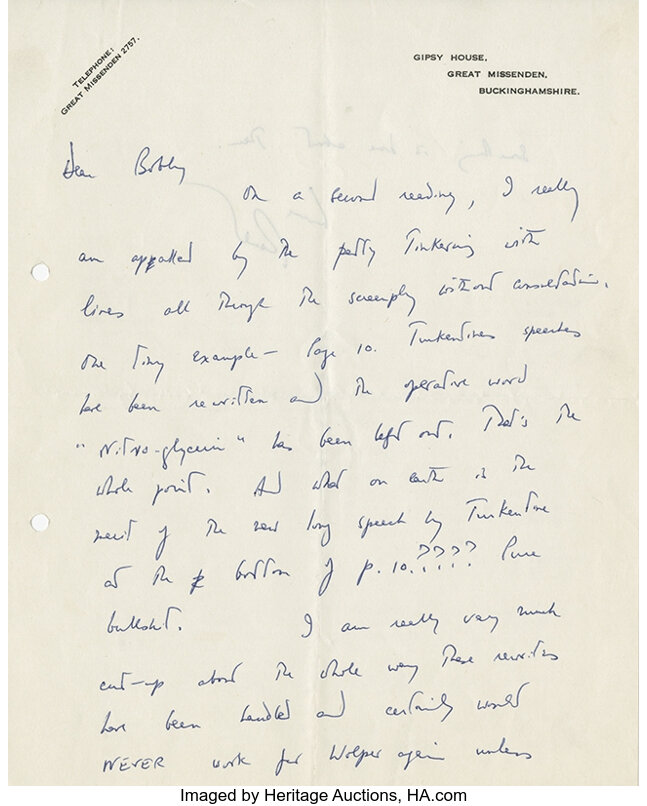 TELEPHONE:
GREAT MISSENDEN 2757.
GIPSY HOUSE,
GREAT MISSENDEN,
BUCKINGHAMSHIRE.
Dear Bobby
On a second reading, I really
am appalled by the petty tinkering with
lines all through the screenplay without consultation.
One tiny example — Page 10. Turkentines speeches
have been rewritten and the operative word
"Nitro-glycerin" has been left out. That's the
whole point. And what on earth is the
merit of the new long speech by Turkentine
at the bottom of p. 10.????? Pure
bullshit. I am really very much
cut-up about the whole way these rewrites
have been handled and certainly would
NEVER work for Wolper again unless
Imaged by Heritage Auctions, HA.com